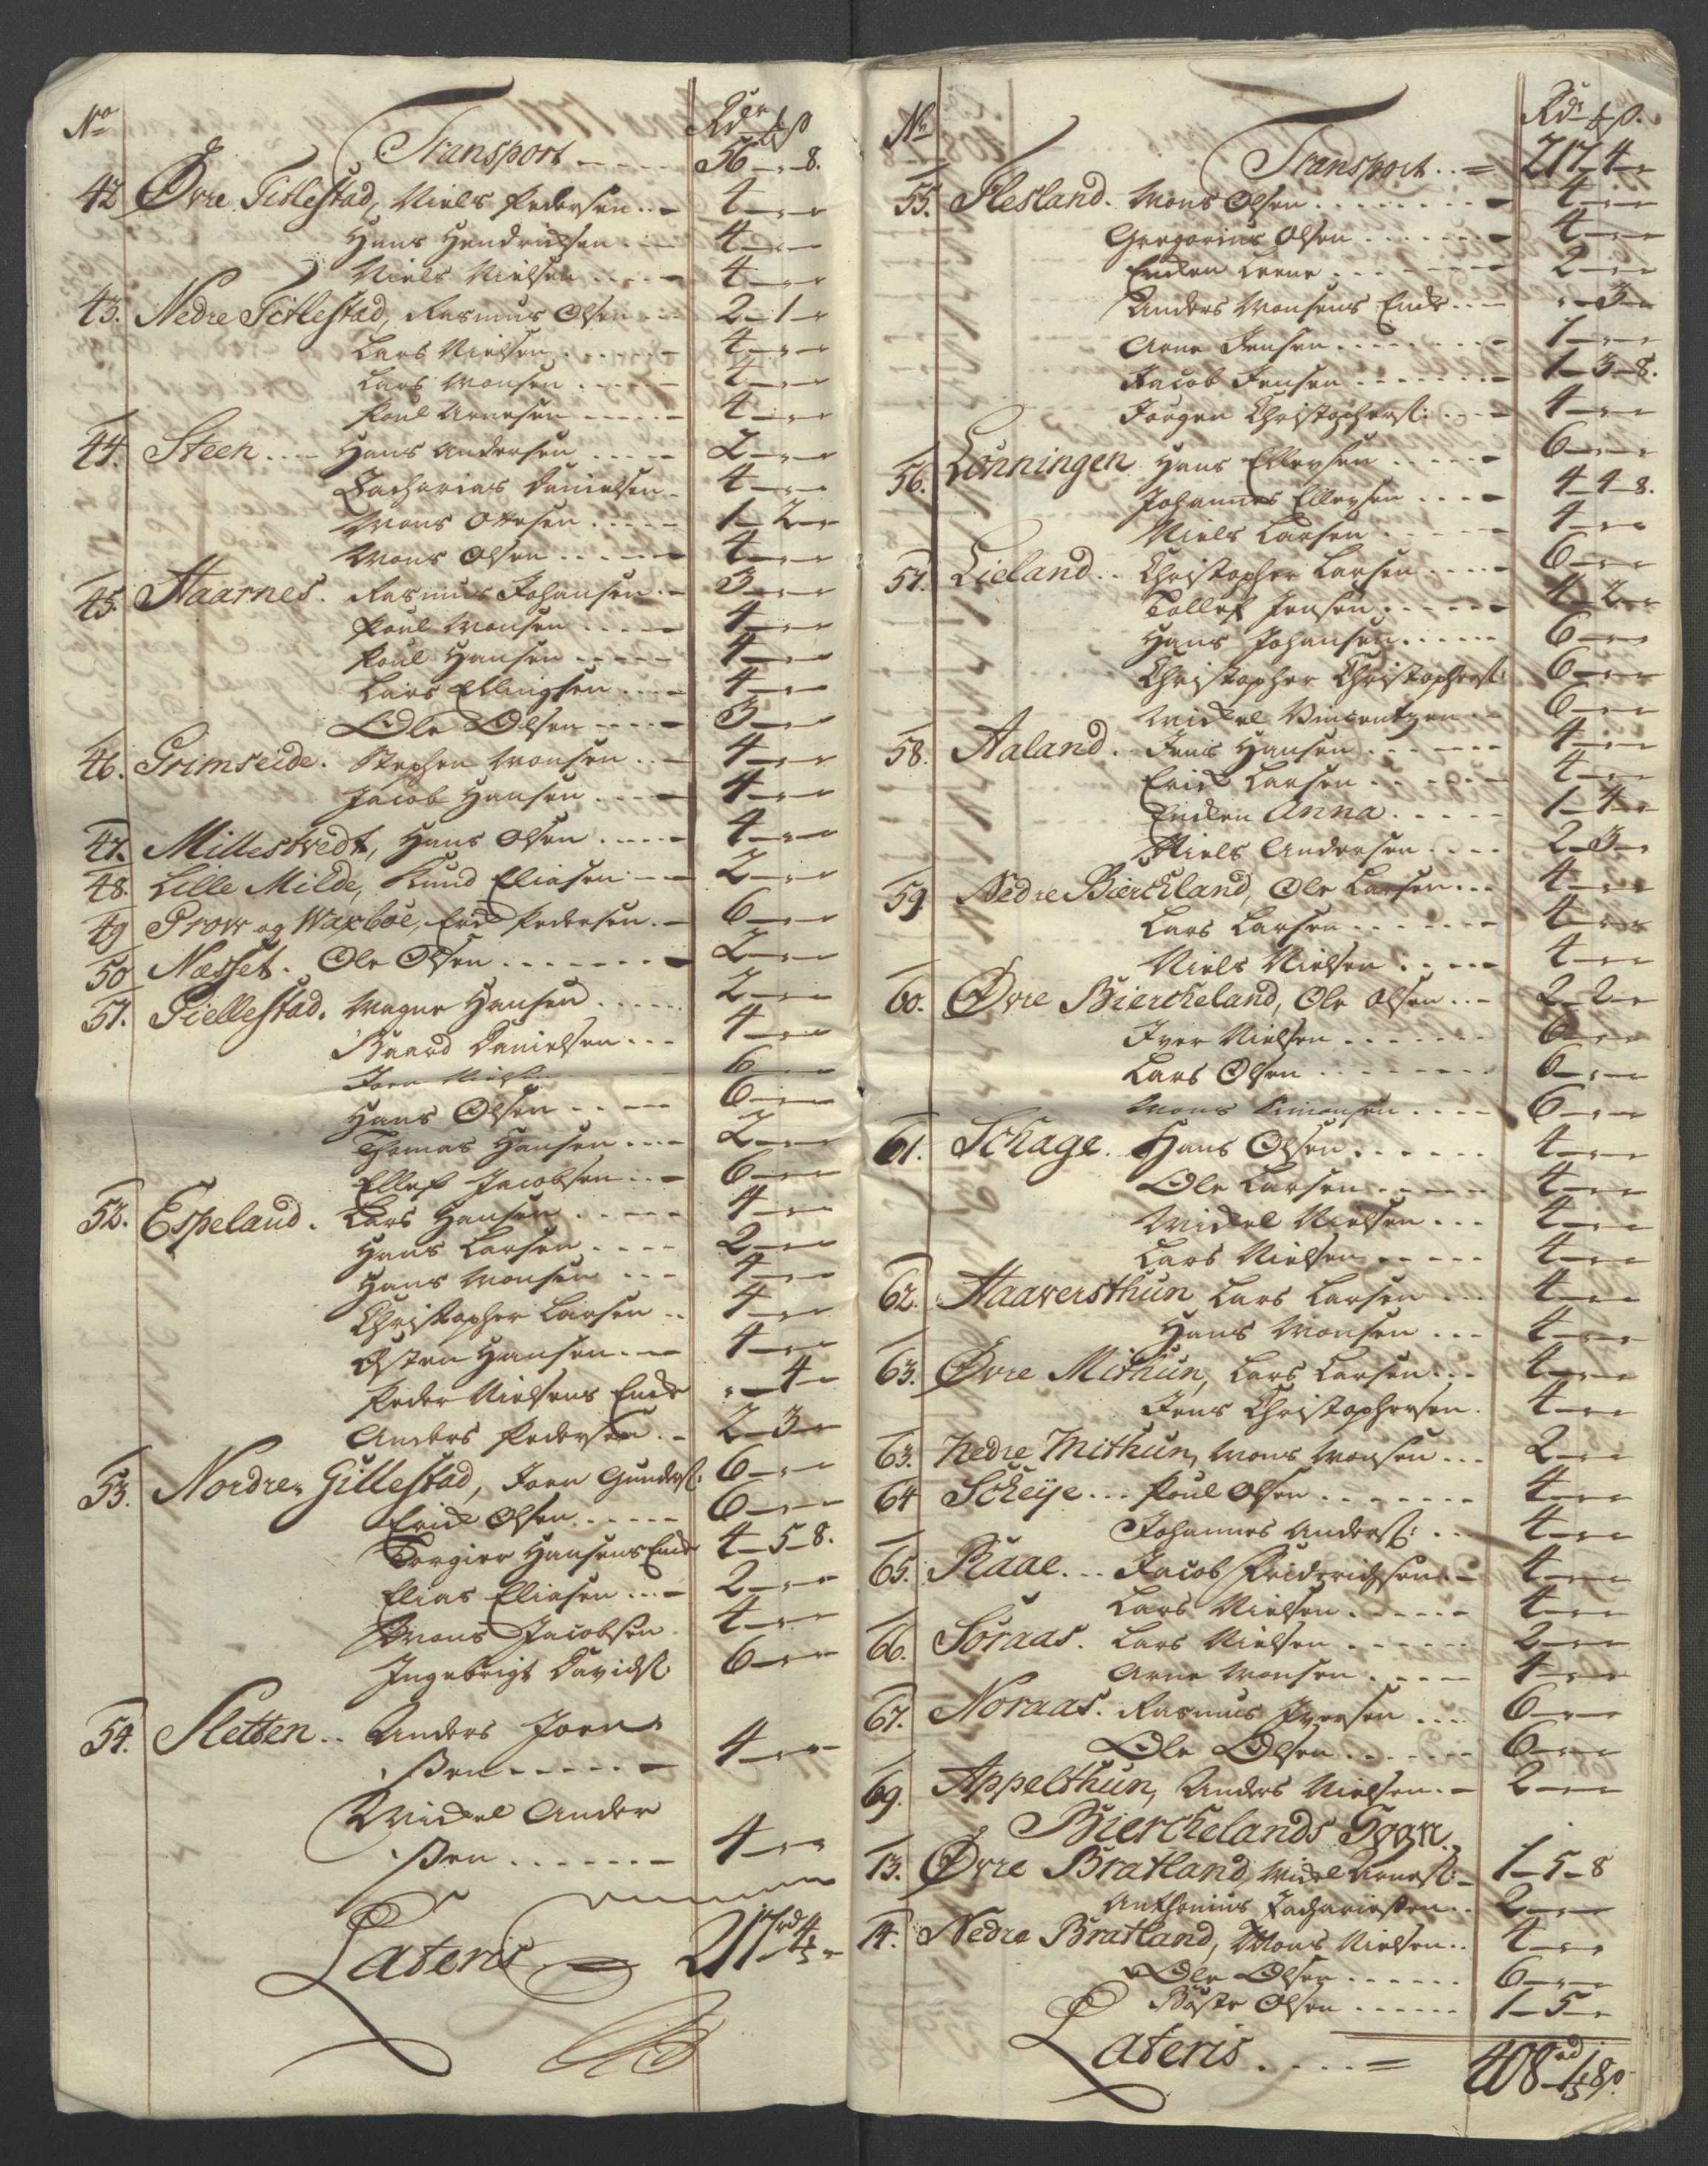 No Rdr ₻ ß
Transport - - - - 56 - „ - 8.
42 Øvre Titlestad, Niels Pedersen . . - 4 - „ - „
Hans Hendrichsen . - - 4 - „ - „
Niels Nielsen - - - - 4 - „ - „
43. Nedre Titlestad, Rasmus Olsen - - - 2 - 1 - „
Lars Nielsen . - - - - 4 - „ - „
Lars Monsen . - - - - 4 - „ - „
Poul Arnesen - - - - - 4 - „ - „
44. Steen . . - - Hans Andersen - - - - 2 - „ - „
Zacharias Danielsen - 4 - „ - „
Mons Ottesen . - - - 1 - 2 - „
Mons Olsen . . - - - 4 - „ - „
45. Haarnes. Rasmus Johansen . - 3 - „ - „
Poul Monsen . . - - - 4 - „ - „
Poul Hansen - - - - - 4 - „ - „
Lars Ellingsen . - - - 4 - „ - „
Ole Olsen - - - - 3 - „ - „
46. Grimseide. Stephen Monsen . . - 4 - „ - „
Jacob Hansen . - - - 4 - „ - „
47. Millestvedt, Hans Olsen . . - - - 4 - „ - „
48. Lille Milde, Knud Eliasen - - - 2 - „ - „
49 Prow og Waxbøe, Erik Pedersen . - 6 - „ - „
50 Næsset. Ole Olsen . . . . - - - 2 - „ - „
51. Tiellestad. Magne Hansen . . . . . 2 - „ - „
Baard Danielsen . - - 4 - „ - „
Joen Nielsen 6 - „ - „
Hans Olsen . . - - - 6 - „ - „
Thomas Hansen - - - 2 - „ - „
Ellef Jacobsen . . - 6 - „ - „
52. Espeland. Lars Hansen . - - - - 4 - „ - „
Hans Larsen . - - - 2 - „ - „
Hans Monsen - - - 4 - „ - „
Christopher Larsen . . 4 - „ - „
Østen Hansen . - - 4 - „ - „
Peder Nielsens Enke „ - 4 - „
Anders Pedersen . - 2 - 3 - „
53. Nordre Gillestad, Joen Gunders: 6 - „ - „
Erik Olsen . . - - - 6 - „ - „
Torgier Hansens Enke 4 - 5 - 8.
Elias Eliasen . . . - 2 - „ - „
Mons Jacobsen . 4 - „ - „
Ingebrigt Davids: 6 - „ - „
54. Sletten . . Anders Joen
ßen - - - - - - 4 - „ - „
Mickel Ander
ßen . . . . . - - - 4 - „ - „
Lateris - 217 rd 4 ₻ „
No Rdr ₻ ß.
Transport . . = 217 - 4 - „
55. Flesland. Mons Olsen . . . . . . . - 4 - „ - „
Gregorius Olsen . . . . . - - 4 - „ - „
Enken Lerne . . . - - - - 2 - „ - „
Anders Monsens Enke . - - „ - 3 - „
Arne Jensen . . . . . . . - 1 - „ - „
Jacob Jensen . - - - - - - 1 - 3 - 8.
Jørgen Christophers: . - - - 4 - „ - „
56. Lønningen Hans Ellevsen . . - - - 6 - „ - „
Johannes Ellevsen . . - - 4 - 4 - 8.
Niels Larsen . . - - - 4 - „ - „
57. Lieland . . Christopher Larsen . - - - 6 - „ - „
Tollef Jensen . - - - - - 4 - 2 - „
Hans Johansen . . - - - - 6 - „ - „
Christopher Christophers: 6 - „ - „
Mickel Vincentzen . - 6 - „ - „
58. Aaland. Jens Hansen . - - - - - 4 - „ - „
Erik Larsen . . - - - - 4 - „ - „
Enken Anna . . . . . 1 - 4 - „
Niels Andersen . . - - 2 - 3 - „
59 Nedre Bierckland, Ole Larsen . - - 4 - „ - „
Lars Larsen . - - - - - 4 - „ - „
Niels Nielsen . . - - - 4 - „ - „
60. Øvre Bierckeland, Ole Olsen . . - 2 - 2 - „
Iver Nielsen . . . . - - - 6 - „ - „
Lars Olsen . . - - - - - - 6 - „ - „
Mons Simonsen . . - - 6 - „ - „
61. Schage. Hans Olsen . . . . . . 4 - „ - „
Ole Larsen . . - - - - 4 - „ - „
Mickel Nielsen . . . 4 - „ - „
Lars Nielsen . - - - - 4 - „ - „
62. Haaversthun Lars Larsen . - - 4 - „ - „
Hans Monsen . . - 4 - „ - „
63. Øvre Mithun, Lars Larsen . . . 4 - „ - „
Jens Christophersen. 4 - „ - „
63. Nedre Mithun, Mons Monsen . . . 2 - „ - „
64 Scheije . . . Poul Olsen . . . . . - - 4 - „ - „
Johannes Anders: . . 4 - „ - „
65. Raae . . . Jacob Friderichsen . - 4 - „ - „
Lars Nielsen . . - - - 4 - „ - „
66. Søraas. Lars Nielsen . . - - - - 2 - „ - „
Arne Monsen . . - - - 4 - „ - „
67. Noraas. Rasmus Iversen . . . 6 - „ - „
Ole Olsen . . - - - - 6 - „ - „
69. Appelthun, Anders Nielsen . - 2 - „ - „
Bierckelands Sogn.
13. Øvre Bratland, Mickel Arnes: - 1 - 5 - 8
Anthonius Zachariasen . . 2 - „ - „
14. Nedre Bratland, Mons Nielsen . . 4 - „ - „
Ole Olsen . . - - - - - 6 - „ - „
Børte Olsen . . - - - - 1 - 5 - „
Lateris . . - - = 408 rd 1 ₻ 8 ß.